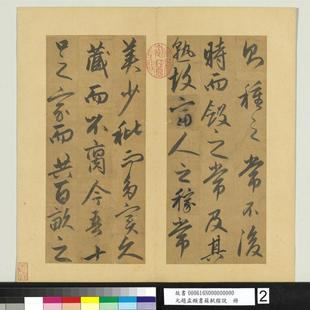 則種之常不後
時而斂之常及其
熟故富人之稼常
美少秕而多實久
藏而不腐今吾十
口之家而共百畝之
故書 000616N000000000
元趙孟頫書蘇軾稼說 冊
2